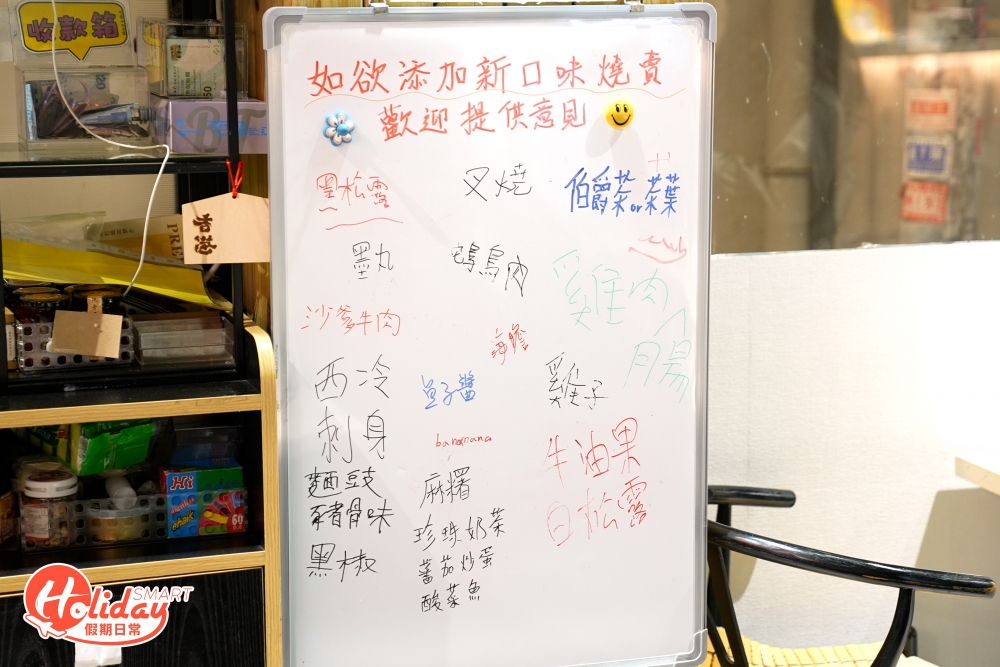 收款箱
如欲添加新口味燒賣
歡迎提供意見
黑松露
叉燒
伯爵茶or茶葉
墨丸
鴨肉
雞肉
腸
沙爹牛肉
海膽
西冷
魚子醬
雞子
刺身
bananana
牛油果
麵豉
麻糬
白松露
豬骨味
珍珠奶茶
黑椒
蕃茄炒蛋
酸菜魚
香港
Hi
chalk
60
SMART
Holiday
假期日常